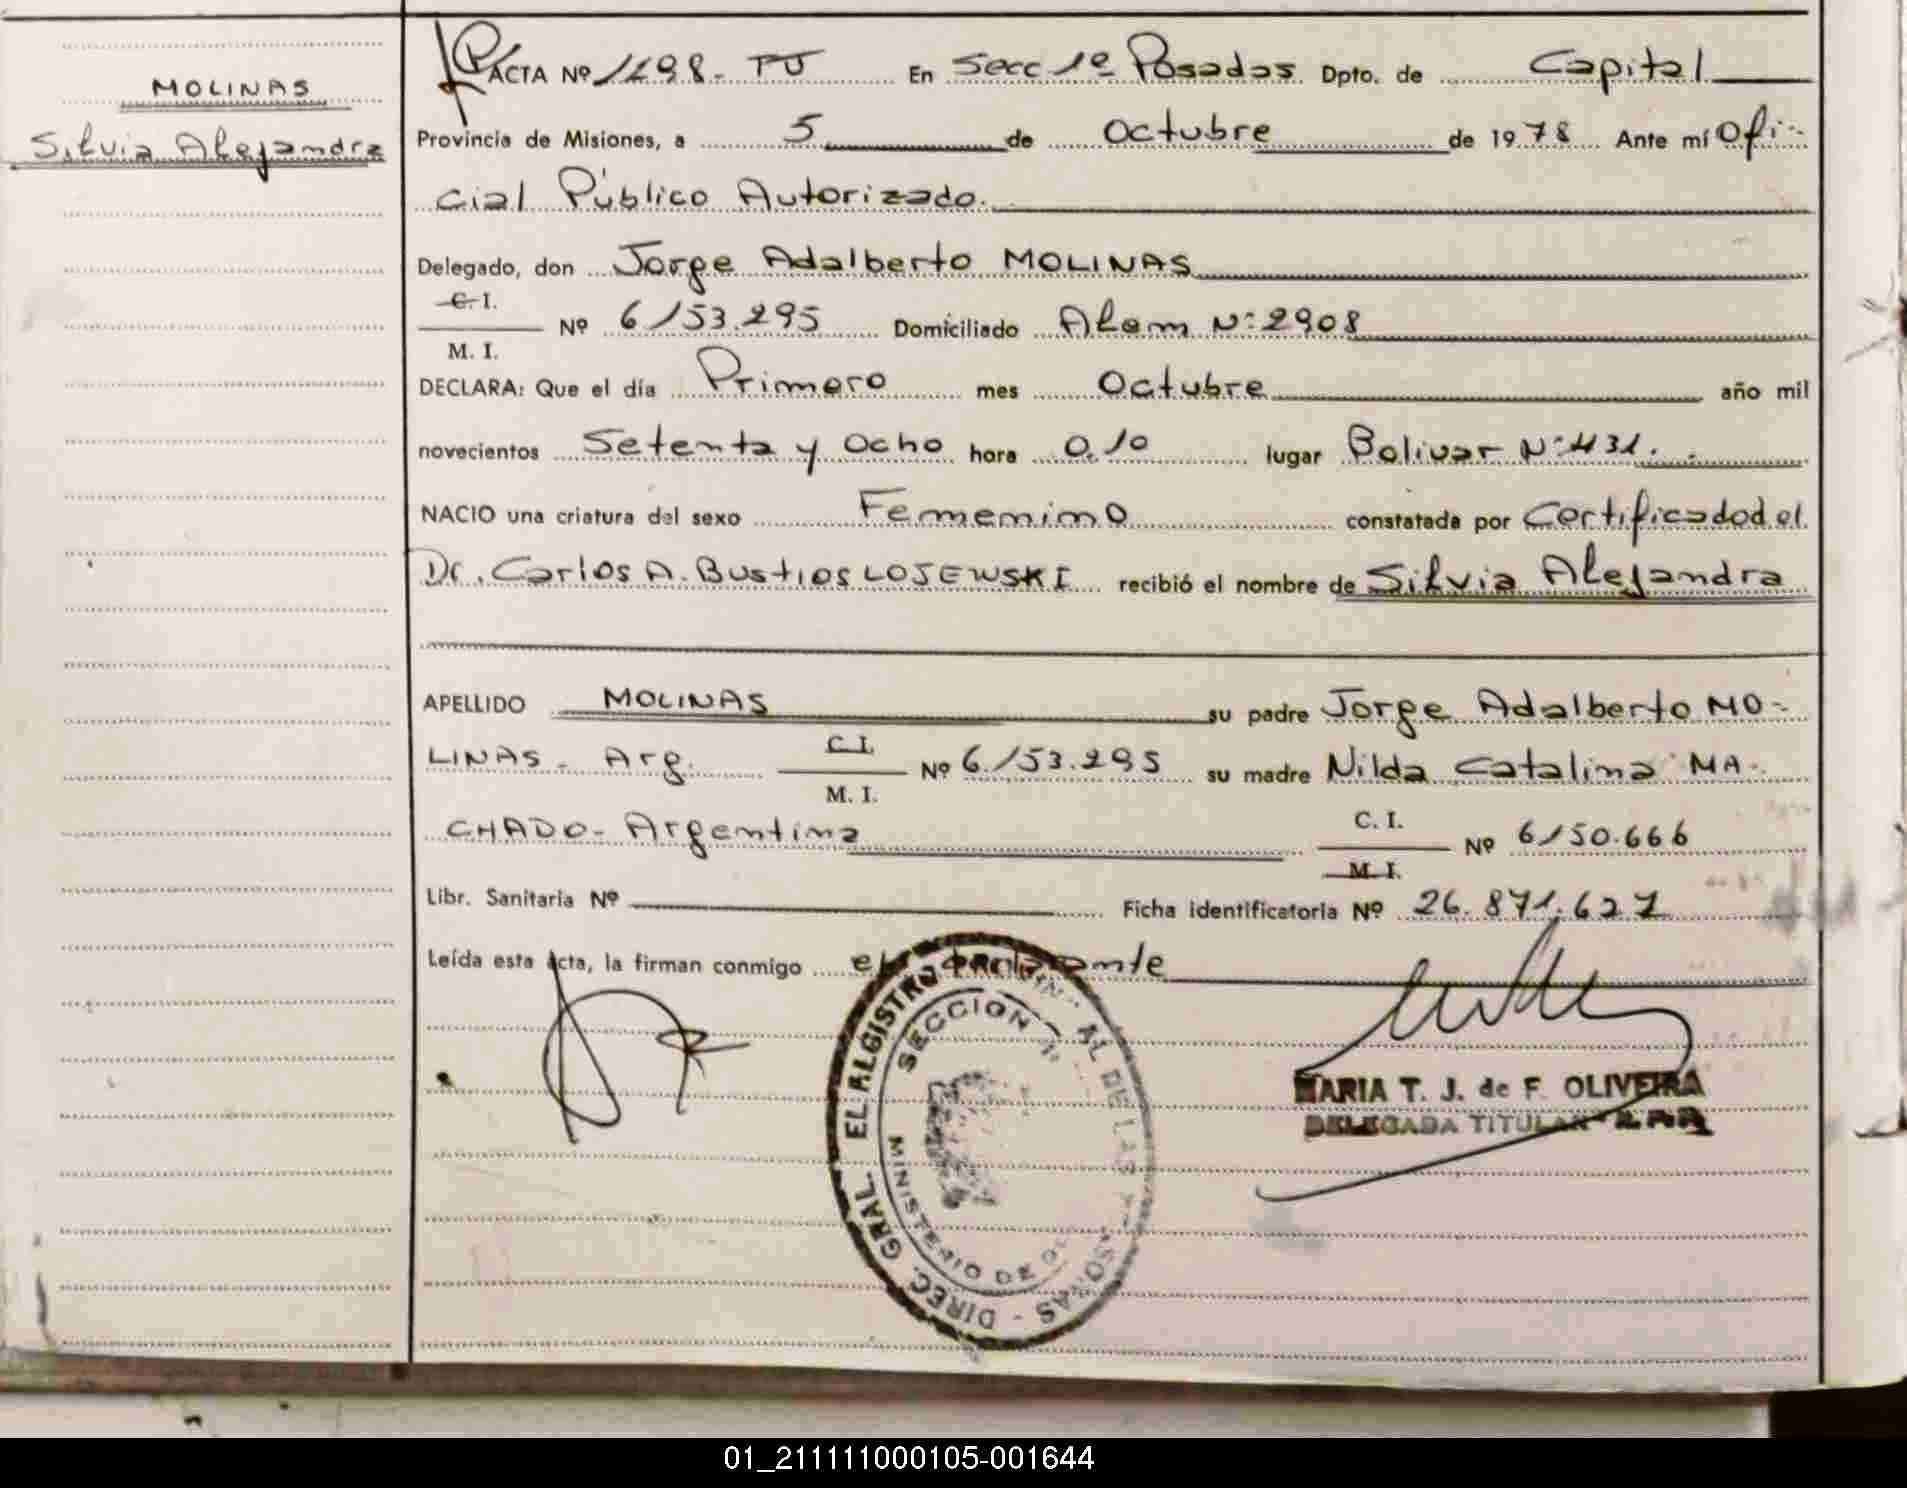 MOLINAS
Silvia Alejandra
ACTA Nº 1498- TJ En Secc 1º Posadas Dpto. de Capital
Provincia de Misiones, a 5 de Octubre de 1978 Ante mí Ofi-
cial Público Autorizado.
Delegado, don Jorge Adalberto MOLINAS
C. I.
Nº 6153.295 Domiciliado Alem Nº 2908
M. I.
DECLARA: Que el día Primero mes Octubre año mil
novecientos Setenta y Ocho hora 0.10 lugar Bolivar Nº 431.
NACIO una criatura del sexo Femenino constatada por Certificado del
Dr. Carlos A. Bustios LOJEWSKI recibió el nombre de Silvia Alejandra
APELLIDO MOLINAS su padre Jorge Adalberto MO-
LINAS - Arg. C. I. Nº 6.153.295 su madre Nilda Catalina MA-
M. I.
CHADO- Argentina C. I. Nº 6150.666
M. I.
Libr. Sanitaria Nº Ficha identificatoria Nº 26.871.627
Leída esta acta, la firman conmigo el
SECCION
MINISTERIO DE
DIREC. GRAL.
MARIA T. J. de F. OLIVEIRA
DELEGADA TITULAR
01_211111000105-001644